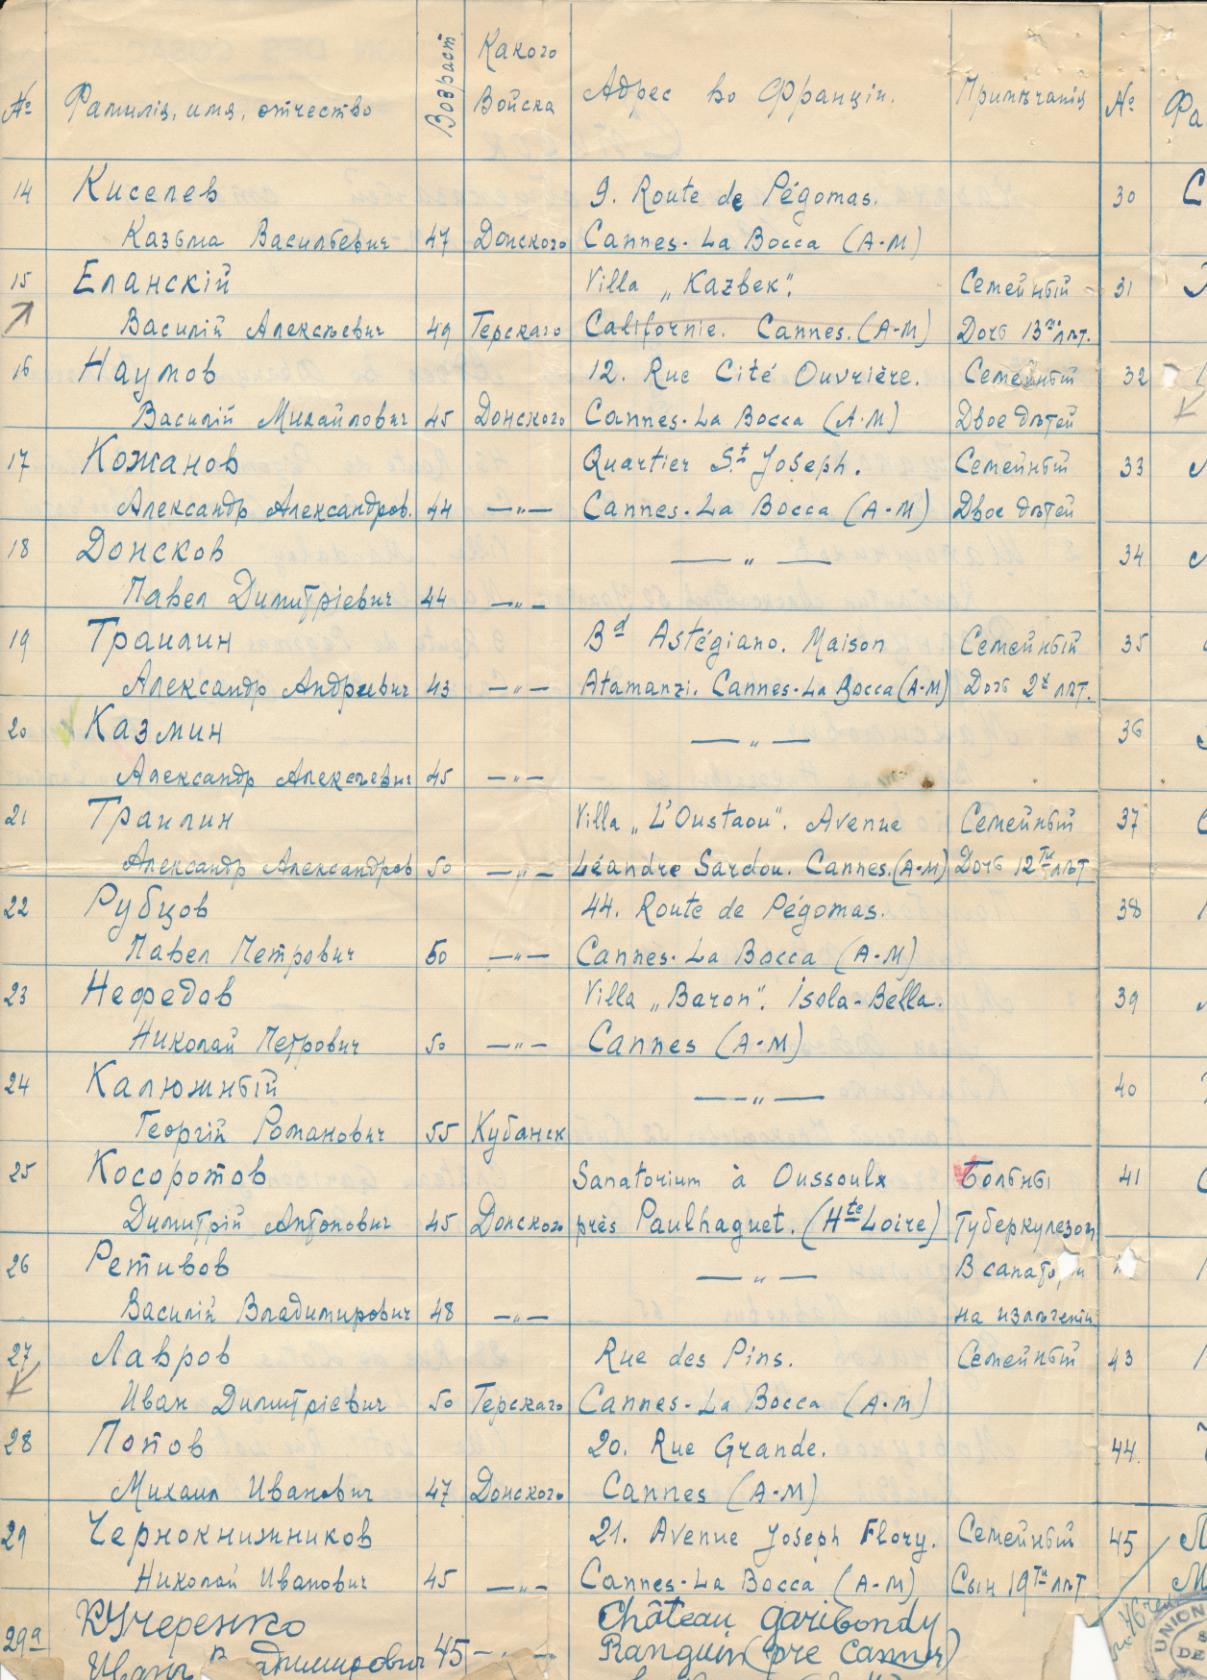 № Фамилія, имя, отчество Возраст Какого Войска Адрес во Франціи. Примѣчанія № Фа
14 Киселев 9. Route de Pégomas. 30 С
Казьма Васильевич 47 Донского Cannes-La Bocca (A-M)
15 Еланскій Villa „Kazbek”. Семейный 31
Василій Алексѣевич 49 Терскаго Californie. Cannes. (A-M) Дочь 13ти лѣт.
16 Наумов 12. Rue Cité Ouvrière. Семейный 32
Василій Михайлович 45 Донского Cannes-La Bocca (A-M) Двое дѣтей
17 Кожанов Quartier St Joseph. Семейный 33
Александр Александров. 44 —„— Cannes-La Bocca (A-M) Двое дѣтей
18 Донсков —„— 34
Павел Димитріевич 44 —„—
19 Траилин Bd Astégiano. Maison Семейный 35
Александр Андреевич 43 —„— Atamanzi. Cannes-La Bocca (A-M) Дочь 2х лѣт.
20 Казмин —„— 36
Александр Алексѣевич 45 —„—
21 Траилин Villa „L'Oustaou”. Avenue Семейный 37
Александр Александров 50 —„— Léandre Sardou. Cannes. (A-M) Дочь 12ти лѣт
22 Рубцов 44. Route de Pégomas. 38
Павел Петрович 50 —„— Cannes-La Bocca (A-M)
23 Нефедов Villa „Baron”. Isola-Bella. 39
Николай Петрович 50 —„— Cannes (A-M)
24 Калюжный —„— 40
Георгій Романович 55 Кубанск
25 Косоротов Sanatorium à Oussoulx Больны 41
Димитрій Антонович 45 Донского près Paulhaguet. (Hte Loire) Туберкулезом
26 Ретивов —„— В санатории
Василій Владимирович 48 —„— на излѣченіи
27 Лавров Rue des Pins. Семейный 43
Иван Димитріевич 50 Терскаго Cannes-La Bocca (A-M)
28 Попов 20. Rue Grande. 44.
Михаил Иванович 47 Донского Cannes (A-M)
29 Чернокнижников 21. Avenue Joseph Flory. Семейный 45
Николай Иванович 45 —„— Cannes-La Bocca (A-M) Сын 19ти лѣт
29а Кучеренко Château garibondy
Иван 45 —„— Ranguin (pre Cannes)
UNION DE